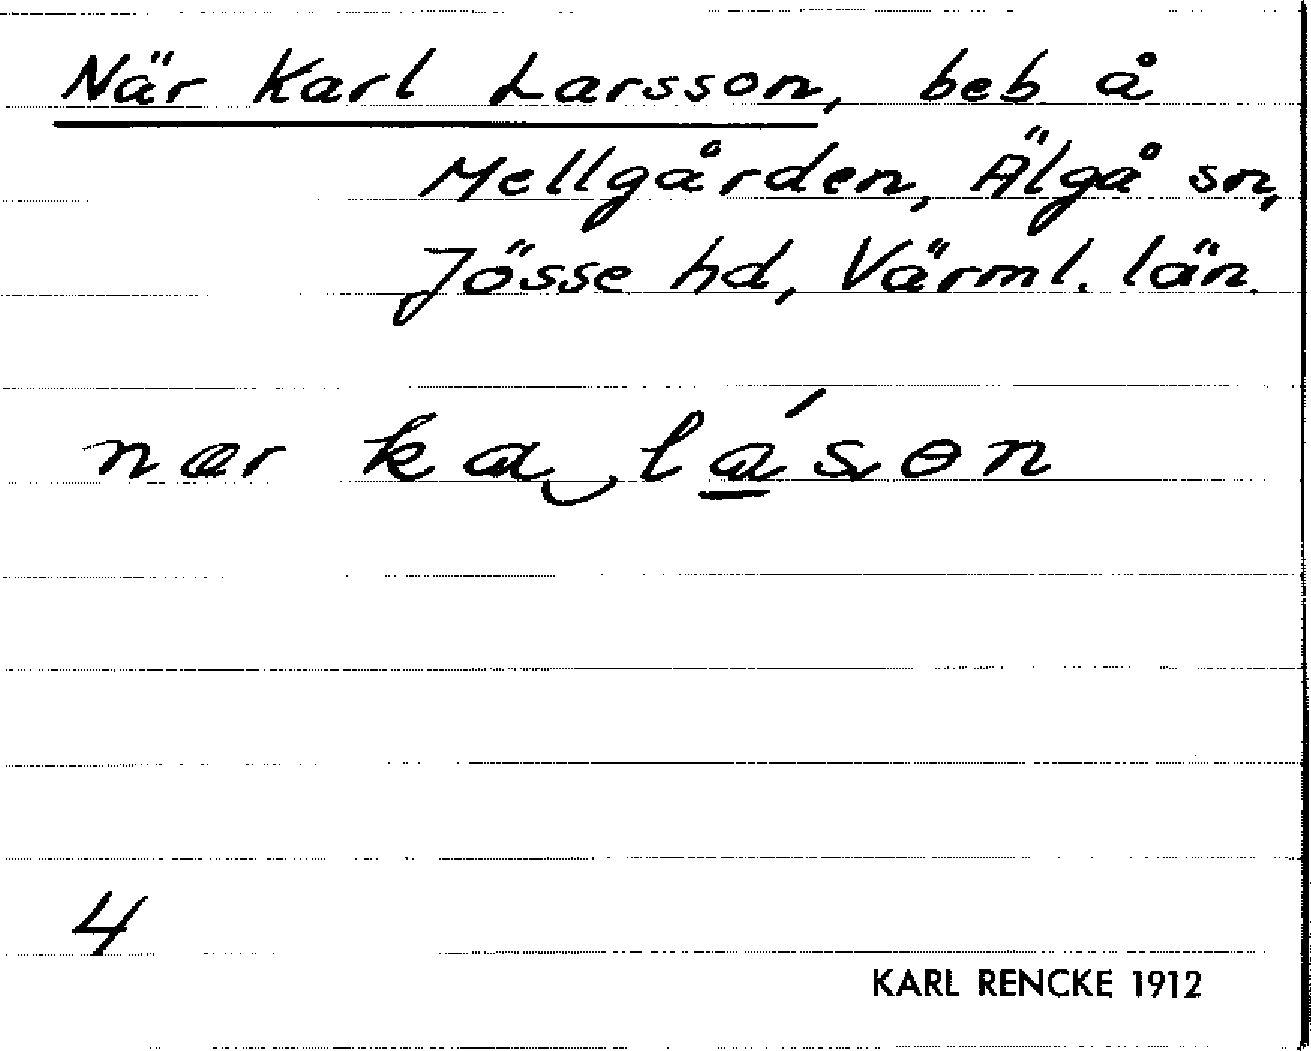 När Karl Larsson, beb å
Mellgården, Älgå sn,
Jösse hd, Värml. län.
nær ka‿la̱´sɵn
4
KARL RENCKE 1912